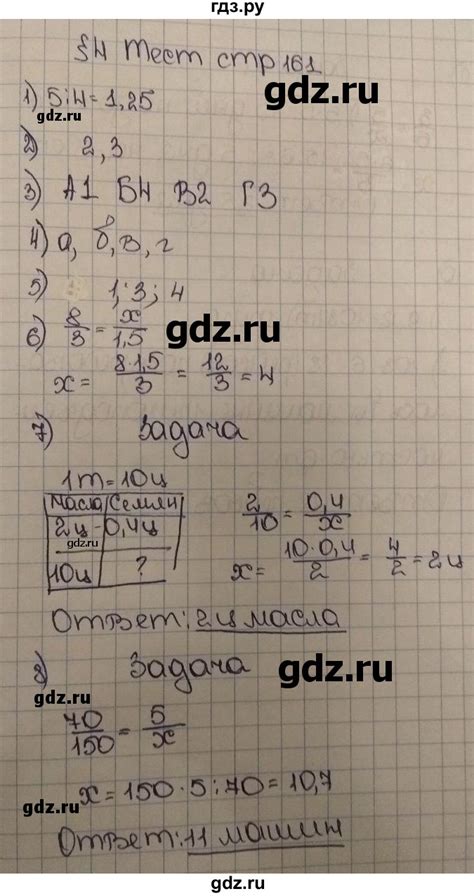 гдз.ру
§4 Тест стр 161
1) 5:4=1,25
gdz.ru
gdz.ru
2) 2,3
3) А1 Б4 В2 Г3
4) а, б, в, г
5) 1; 3; 4
6) 8/3 = x/1,5
gdz.ru
gdz.ru
x = 8·1,5/3 = 12/3 = 4
7) Задача
1т=10ц
Масла Семян
2ц - 0,4ц
gdz.ru
10ц ?
2/10 = 0,4/x
x = 10·0,4/2 = 4/2 = 2ц
Ответ: 2ц масла
8) Задача
gdz.ru
70/150 = 5/x
gdz.ru
x = 150·5:70 = 10,7
gdz.ru
Ответ: 11 машин
gdz.ru
gdz.ru